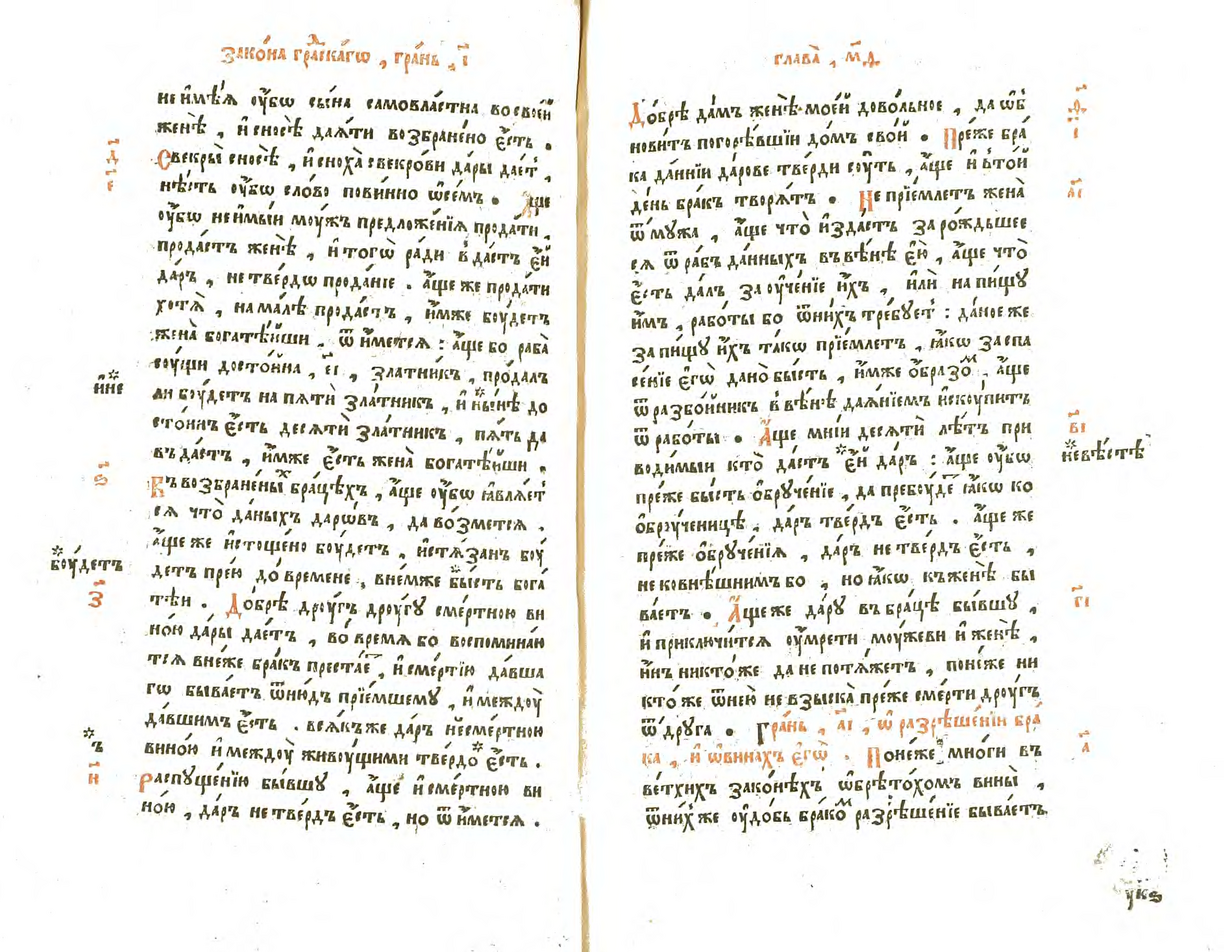 Зако́на гра́дскагѡ , гра́нь , і҃
не и҆мѣ́ѧ ѹ҆́бѡ сы́на самовла́стна во свое́й
женѣ̀ , и҆ сносѣ̀ даѧ́ти возбране́но є҆́сть .
Свекры̀ сносѣ̀ , и҆ сноха̀ свекро́ви да́ры дае́тъ ,
нѣ́сть ѹ҆́бѡ сло́во пови́нно ѡ҆ се́мъ . А҆́ще
ѹ҆́бѡ не и҆мы́и мѹ́жъ предложе́нїѧ прода́ти ,
прода́стъ женѣ̀ , и҆ тогѡ̀ ра́ди вда́стъ є҆́й
да́ръ , не тве́рдѡ прода́нїе . а҆́ще же прода́ти
хотѧ̀ , на ма́лѣ прода́стъ , и҆́мже бѹ́детъ
жена̀ богатѣ́йши , ѿи́метсѧ : а҆́ще бо раба̀
сѹ́щи досто́йна , є҃і , зла́тникъ , про́далъ
ли бѹ́детъ на пѧтѝ зла́тникъ , и҆ ны́нѣ до
сто́инъ є҆́сть десѧтѝ зла́тникъ , пѧ́ть да
въда́стъ , и҆́мже є҆́сть жена̀ богатѣ́йши .
Въ возбране́ны́хъ бра́цѣхъ , а҆́ще ѹ҆́бѡ ꙗ҆влѧ́етъ
сѧ что̀ да́ныхъ даро́въ , да во́зметсѧ .
а҆́ще же и҆стощено̀ бѹ́детъ , и҆стѧ́занъ бѹ́
детъ пре́ю до вре́мене , в не́мже бы́сть бога
тѣ́и . До́брѣ дрѹ́гъ дрѹ́гꙋ сме́ртною ви
но́ю да́ры дае́тъ , во вре́мѧ бо воспомина́ю
тсѧ внеже бра́къ преста́етъ , и҆ сме́ртїю да́вша
гѡ быва́етъ ѿню́дъ прїе́мшемꙋ , и҆ междѹ̀
да́вшимъ є҆́сть . всѧ́къ же да́ръ несме́ртною
вино́ю и҆ междѹ̀ живѹ́щими тве́рдо є҆́сть .
Распꙋще́нїю бы́вшꙋ , а҆́ще и҆ сме́ртною ви
но́ю , да́ръ не тве́рдъ є҆́сть , но ѿи́метсѧ .
д҃
и҆́не
ѕ҃
бѹ́детъ
з҃
ъ
и҃
глава̀ , м҃д
До́брѣ да́мъ женѣ̀ мое́й дово́льное , да ѡ҆б
нови́тъ погорѣ́вшїи до́мъ сво́й . Пре́же бра́
ка да́ннїи да́рове тве́рди сѹ́ть , а҆́ще и҆ в то́й
де́нь бра́къ творѧ́тъ . Не прїе́млетъ жена̀
ѿ мꙋ́жа , а҆́ще что̀ и҆зда́стъ за ро́ждьшее
сѧ ѿ ра́бъ да́нныхъ въ вѣ́нѣ є҆ю̀ , а҆́ще что̀
є҆́сть да́лъ за ѹ҆че́нїе и҆́хъ , и҆лѝ на пи́щꙋ
и҆́мъ , рабо́ты бо ѿни́хъ тре́бꙋетъ : да́ное же
за пи́щꙋ и҆́хъ та́кѡ прїе́млетъ , ꙗ҆́кѡ за спа
се́нїе є҆гѡ̀ дано̀ бы́сть , и҆́мже ѻ҆́бразомъ , а҆́ще
ѿ разбо́йникъ в вѣ́нѣ даѧ́нїемъ и҆скѹ́питъ
ѿ рабо́ты . А҆́ще мні́и десѧтѝ лѣ́тъ при
води́мыи кто̀ да́стъ є҆́й да́ръ : а҆́ще ѹ҆́бѡ
пре́же бы́сть ѻ҆брꙋче́нїе , да пребѹ́детъ ꙗ҆́кѡ ко
ѻ҆брѹ́ченицѣ , да́ръ тве́рдъ є҆́сть . а҆́ще же
пре́же ѻ҆брꙋче́нїѧ , да́ръ не тве́рдъ є҆́сть ,
не ко внѣ́шнимъ бо , но ꙗ҆́кѡ къ женѣ̀ бы
ва́етъ . А҆́ще же да́рꙋ въ бра́цѣ бы́вшꙋ ,
и҆ приключи́тсѧ ѹ҆мре́ти мѹ́жеви и҆ женѣ̀ ,
и҆́нъ никто́же да не потѧ́жетъ , поне́же ни
кто́же ѿ нею̀ не взыска̀ пре́же сме́рти дрѹ́гъ
ѿ дрꙋ́га . Гра́нь , а҃і , ѡ҆ разрѣше́нїи бра́
ка , и҆ ѡ҆ вина́хъ є҆гѡ̀ . Поне́же мно́ги въ
ве́тхихъ зако́нѣхъ ѡ҆брѣто́хомъ вины̀ ,
ѿни́хже ѹ҆до́бь брако́мъ разрѣше́нїе быва́етъ
і
а҃і
в҃і
невѣ́стѣ
г҃і
а҃
ꙋ҃кѕ